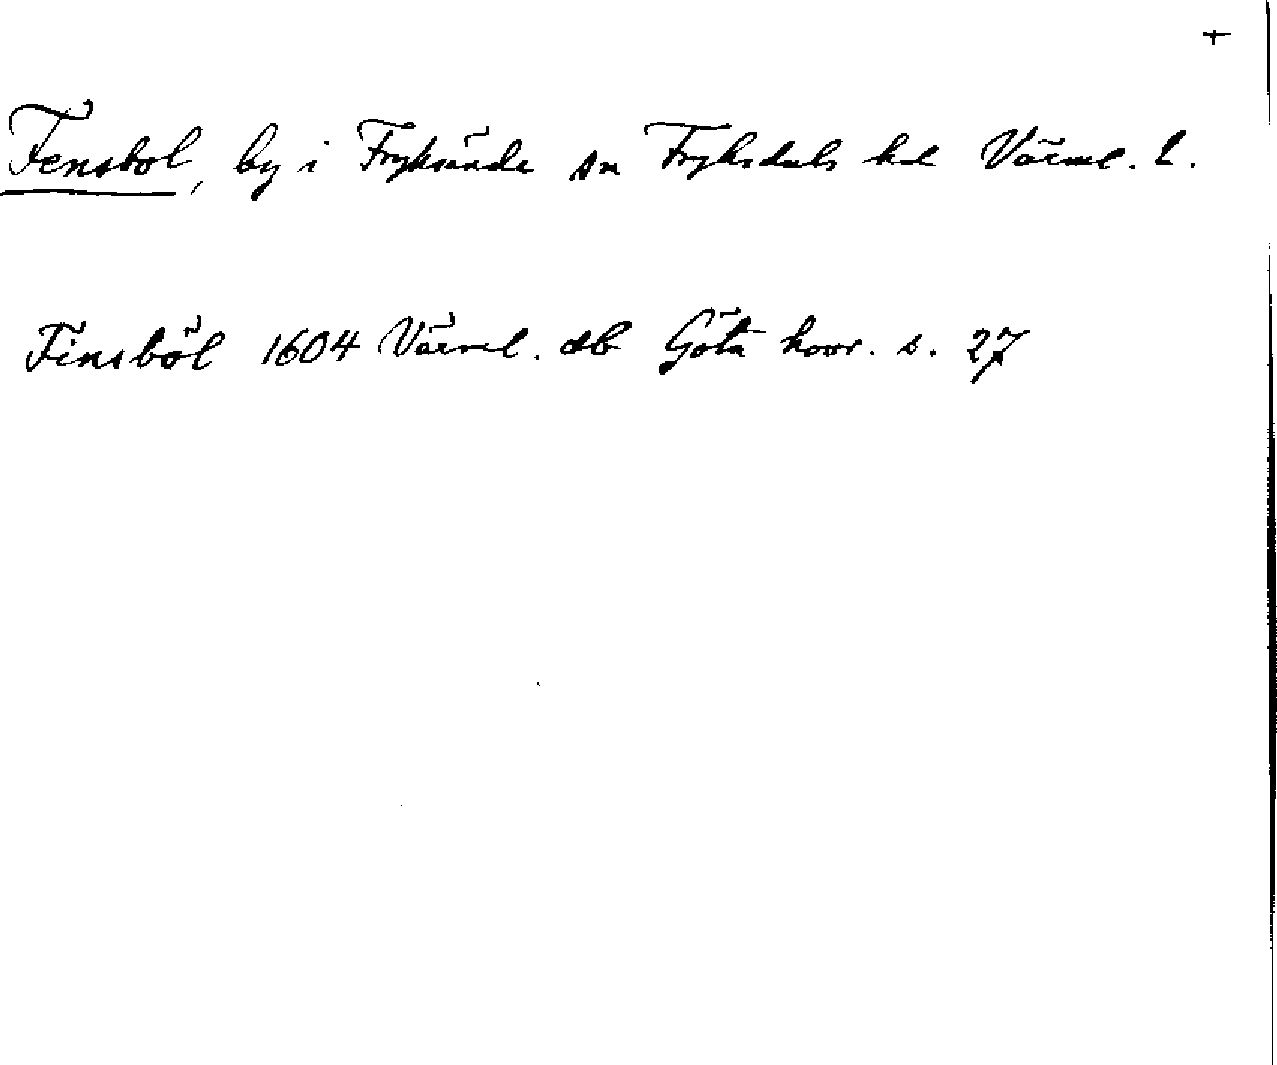 +
Fensbol, by i Fryksände sn Fryksdals hd Värml. l.
Finsböl 1604 Värml. db Göta hovr. s. 27